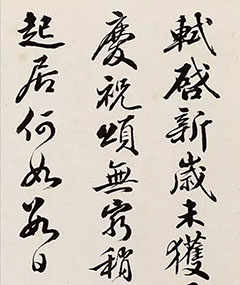 軾啓新歲未獲
慶祝頌無窮稍
起居何如數日